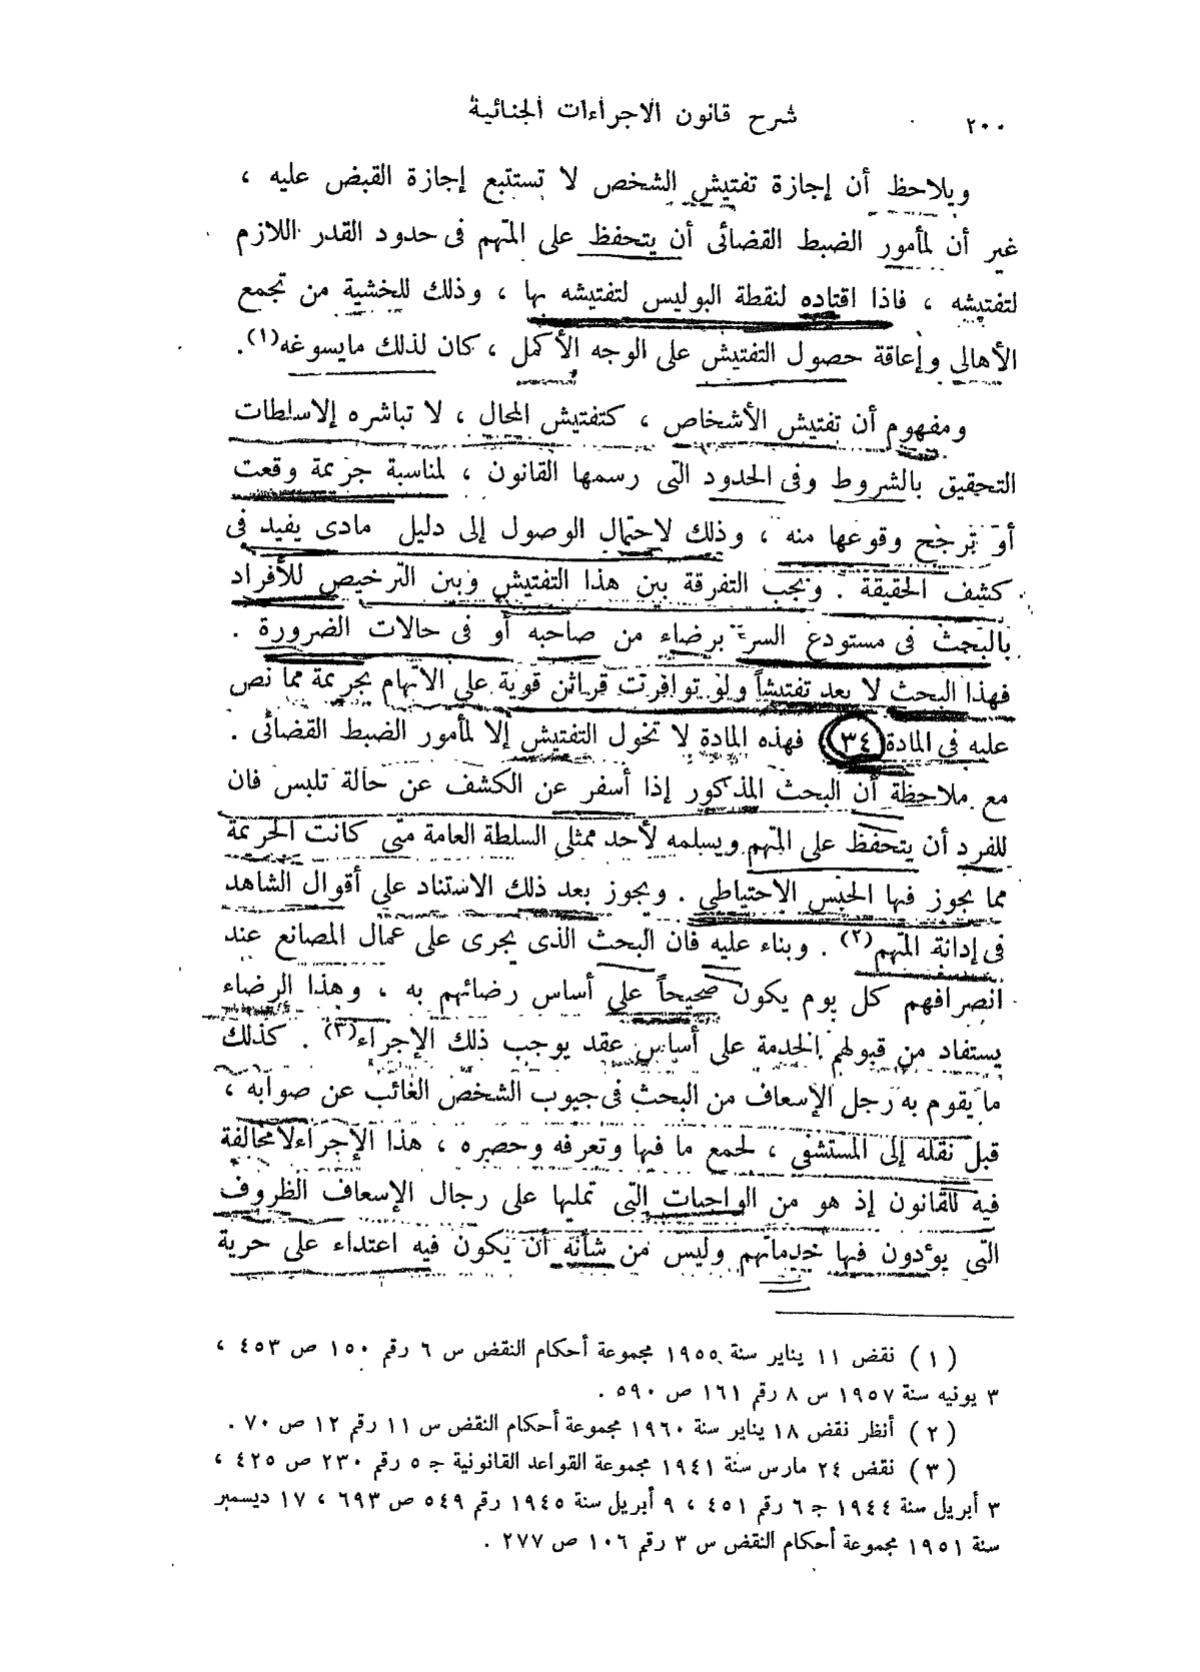 ٢٠٠ شرح قانون الاجراءات الجنائية
ويلاحظ أن إجازة تفتيش الشخص لا تستتبع إجازة القبض عليه ،
غير أن لمأمور الضبط القضائى أن يتحفظ على المتهم فى حدود القدر اللازم
لتفتيشه ، فاذا اقتاده لنقطة البوليس لتفتيشه بها ، وذلك للخشية من تجمع
الأهالى وإعاقة حصول التفتيش على الوجه الأكمل ، كان لذلك مايسوغه(١).
ومفهوم أن تفتيش الأشخاص ، كتفتيش المحال ، لا تباشره إلاسلطات
التحقيق بالشروط وفى الحدود التى رسمها القانون ، لمناسبة جريمة وقعت
أو ترجح وقوعها منه ، وذلك لاحتمال الوصول إلى دليل مادى يفيد فى
كشف الحقيقة . ويجب التفرقة بين هذا التفتيش وبين الترخيص للأفراد
بالبحث فى مستودع السر برضاء من صاحبه أو فى حالات الضرورة .
فهذا البحث لا يعد تفتيشاً ولو توافرت قرائن قوية على الاتهام بجريمة مما نص
عليه فى المادة (٣٤) فهذه المادة لا تخول التفتيش إلا لمأمور الضبط القضائى .
مع ملاحظة أن البحث المذكور إذا أسفر عن الكشف عن حالة تلبس فان
للفرد أن يتحفظ على المتهم ويسلمه لأحد ممثلى السلطة العامة متى كانت الجريمة
مما يجوز فيها الحبس الاحتياطى . ويجوز بعد ذلك الاستناد على أقوال الشاهد
فى إدانة المتهم(٢) . وبناء عليه فان البحث الذى يجرى على عمال المصانع عند
انصرافهم كل يوم يكون صحيحاً على أساس رضائهم به ، وهذا الرضاء
يستفاد من قبولهم الخدمة على أساس عقد يوجب ذلك الإجراء(٣) . كذلك
ما يقوم به رجل الإسعاف من البحث فى جيوب الشخص الغائب عن صوابه ،
قبل نقله إلى المستشفى ، لجمع ما فيها وتعرفه وحصره ، هذا الإجراءلامخالفة
فيه للقانون إذ هو من الواجبات التى تمليها على رجال الإسعاف الظروف
التى يؤدون فيها خدماتهم وليس من شأنه أن يكون فيه اعتداء على حرية
(١) نقض ١١ يناير سنة ١٩٥٥ مجموعة أحكام النقض س ٦ رقم ١٥٠ ص ٤٥٣ ،
٣ يونيه سنة ١٩٥٧ س ٨ رقم ١٦١ ص ٥٩٠ .
(٢) أنظر نقض ١٨ يناير سنة ١٩٦٠ مجموعة أحكام النقض س ١١ رقم ١٢ ص ٧٠ .
(٣) نقض ٢٤ مارس سنة ١٩٤١ مجموعة القواعد القانونية ج ٥ رقم ٢٣٠ ص ٤٢٥ ،
٣ أبريل سنة ١٩٤٤ ج ٦ رقم ٤٥١ ، ٩ أبريل سنة ١٩٤٥ رقم ٥٤٩ ص ٦٩٣ ، ١٧ ديسمبر
سنة ١٩٥١ مجموعة أحكام النقض س ٣ رقم ١٠٦ ص ٢٧٧ .